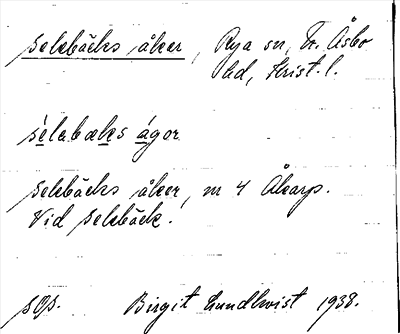 selebäcks åker, Rya sn, N. Åsbo
hd, Krist. l.
sèlabæks ágor
selebäcks åker, nr 4 Åkarp.
Vid selebäck.
sOs. Birgit Lundkvist 1938.